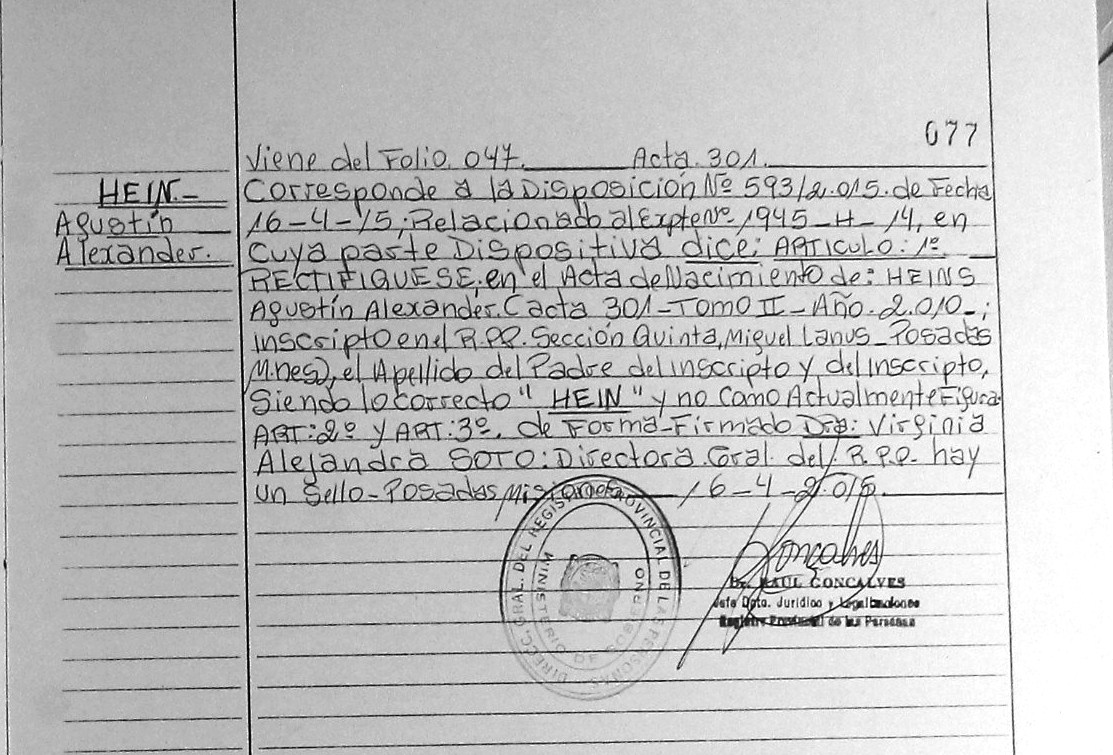 077
Viene del Folio. 047. Acta. 301.
HEIN.-
Agustín
Alexander.
Corresponde a la Disposición Nº 593/2.015. de Fecha
16-4-15; Relacionado al Expte Nº 1945-H-14, en
Cuya parte Dispositiva dice: ARTICULO: 1º
RECTIFIQUESE; en el Acta de Nacimiento de: HEINS
Agustín Alexander. (acta 301-Tomo II-Año. 2.010-;
inscripto en el R.P.P. Sección Quinta, Miguel Lanus-Posadas
M.nes), el Apellido del Padre del inscripto y del inscripto,
Siendo lo correcto "HEIN" y no Como Actualmente Figura
ART: 2º y ART: 3º. de Forma-Firmado Dra: Virginia
Alejandra SOTO: Directora Gral. del R.P.P. hay
un Sello-Posadas Misiones 16-4-2.015.
DIRECC. GRAL. DEL REGISTRO PROVINCIAL DE LAS PERSONAS
MINISTERIO DE GOBIERNO
Goncalves
Dr. RAUL GONCALVES
Jefe Dpto. Jurídico y Legalizaciones
Registro Provincial de las Personas